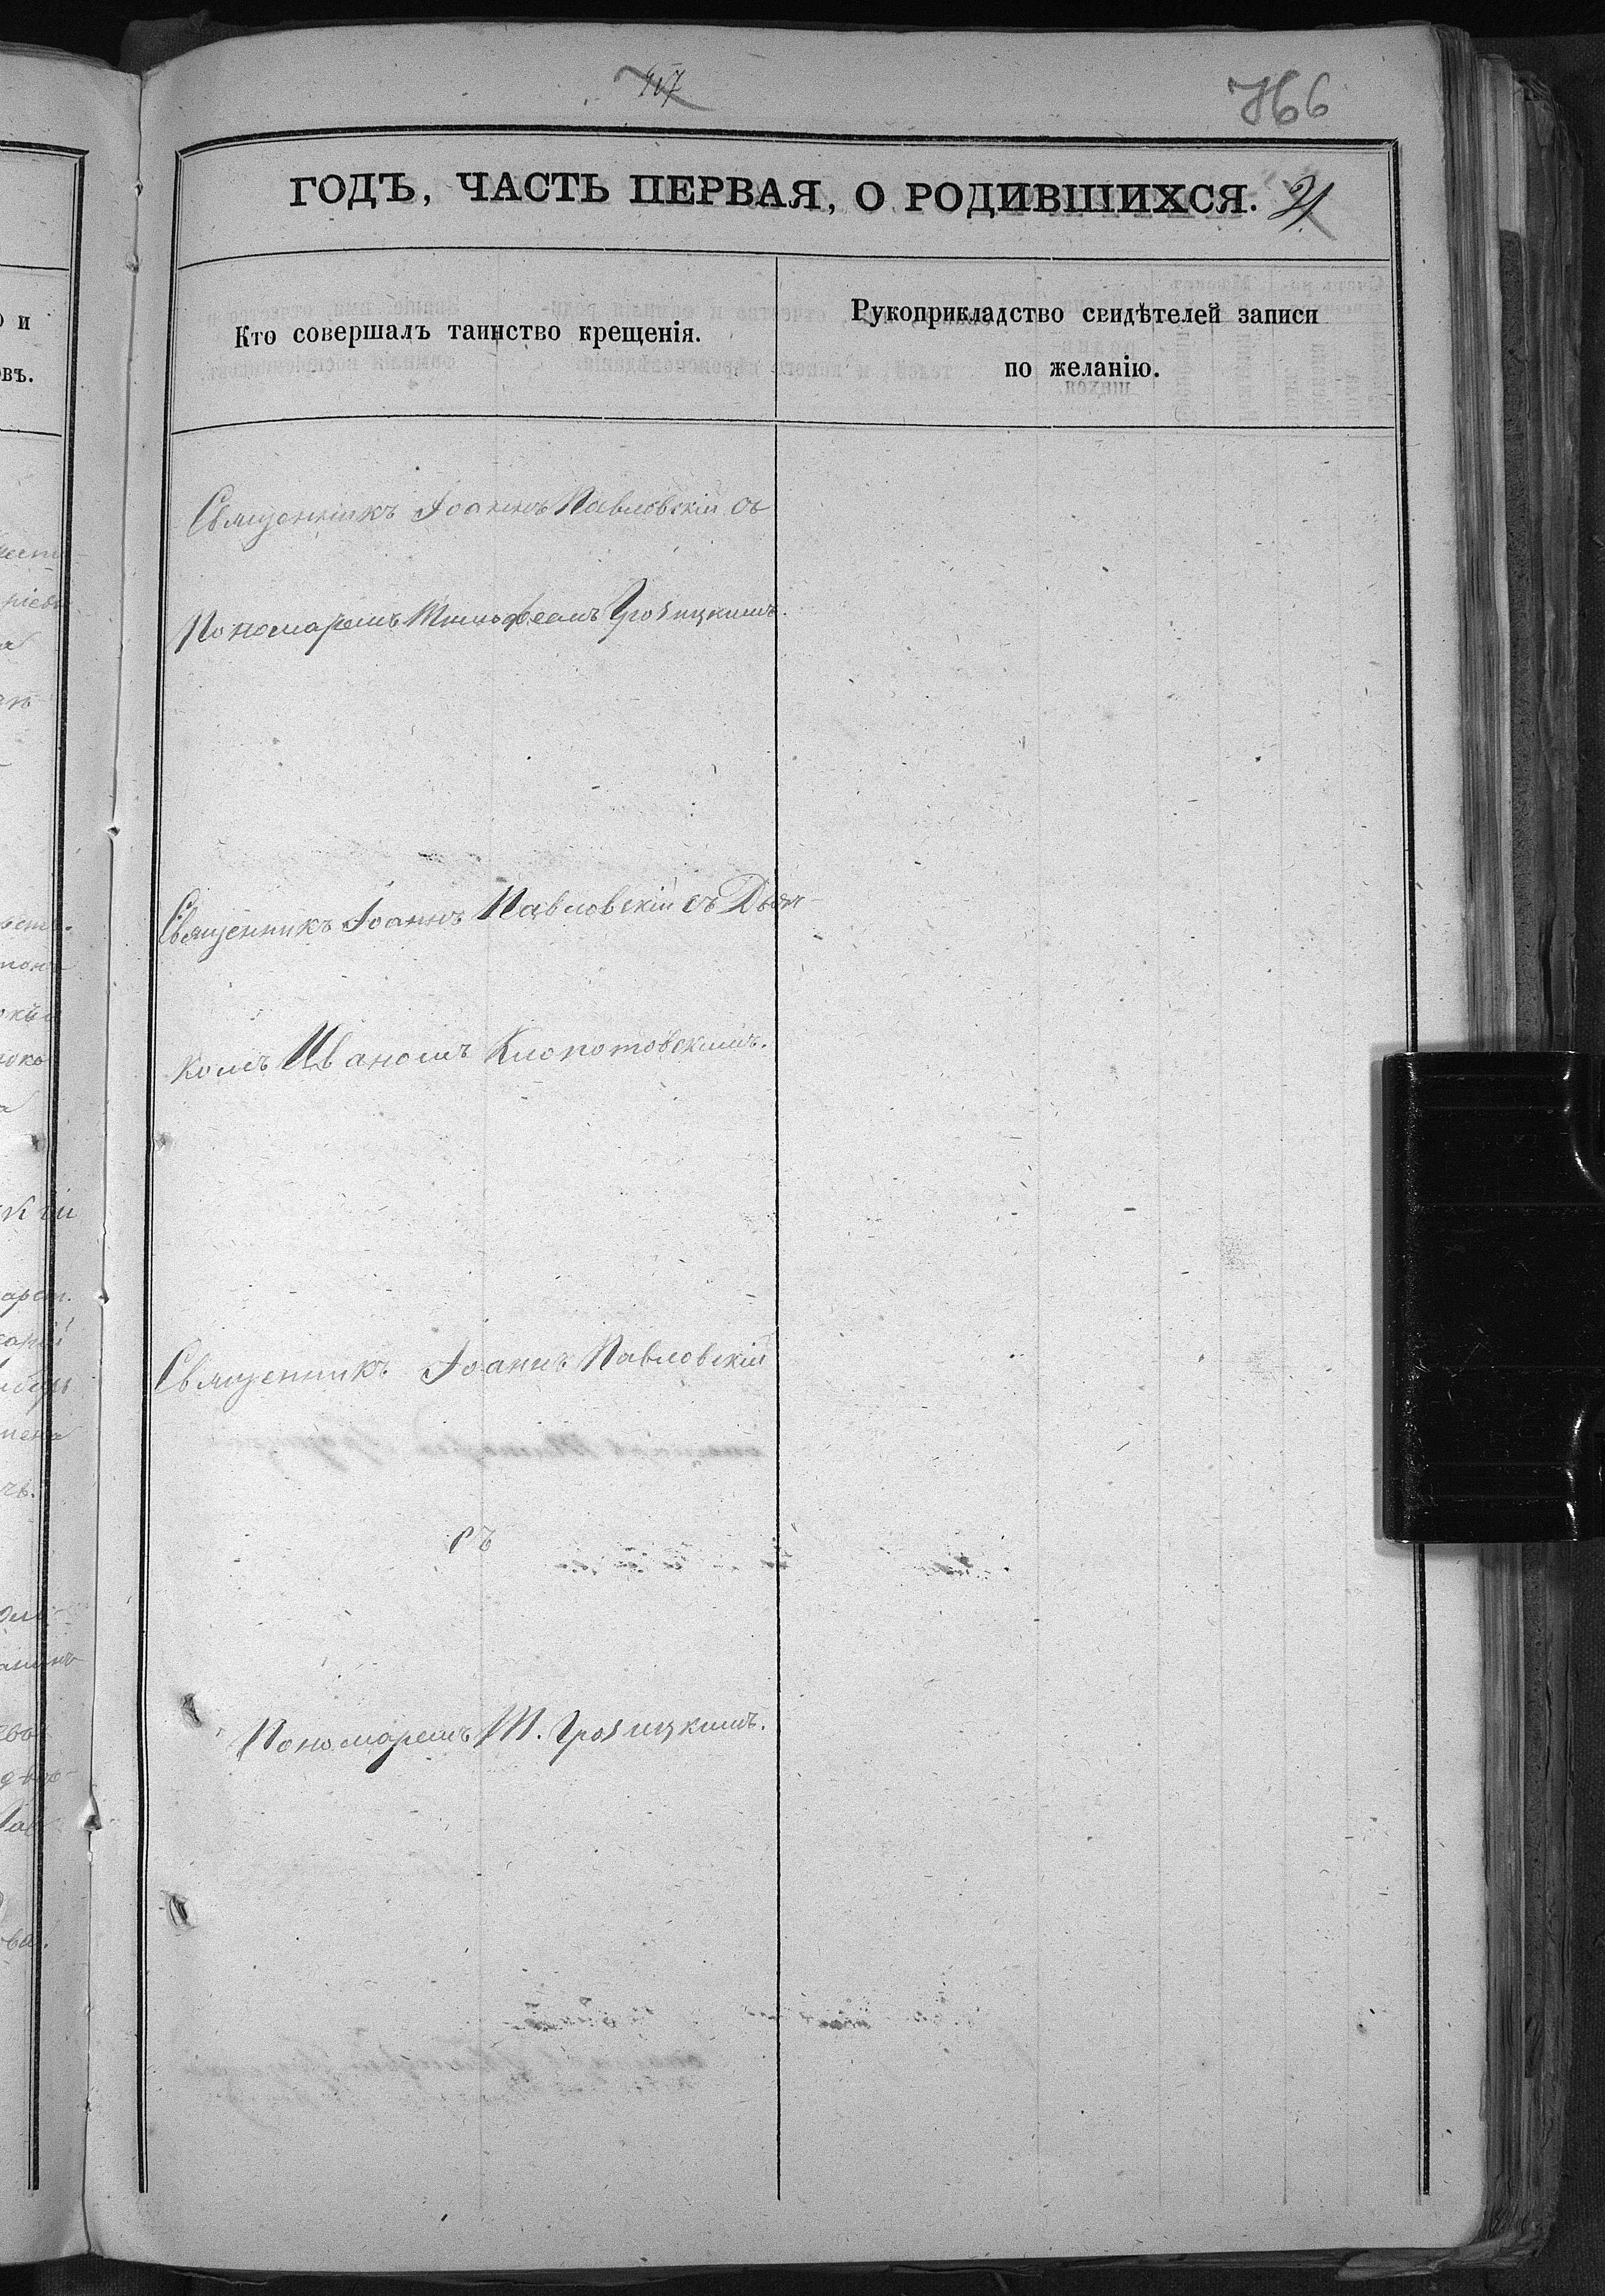 ГОДЪ, ЧАСТЬ ПЕРВАЯ, О РОДИВШИХСЯ. 21
Кто совершалъ таинство крещенія.
Рукоприкладство свидѣтелей записи
по желанію.
Священникъ Іоаннъ Павловскій съ
Пономаремъ Тимоѳеемъ Грозицкимъ.
Священникъ Іоаннъ Павловскій съ Дьяч-
комъ Иваномъ Клопотовскимъ.
Священникъ Іоаннъ Павловскій
съ
Пономаремъ Т. Грозицкимъ.